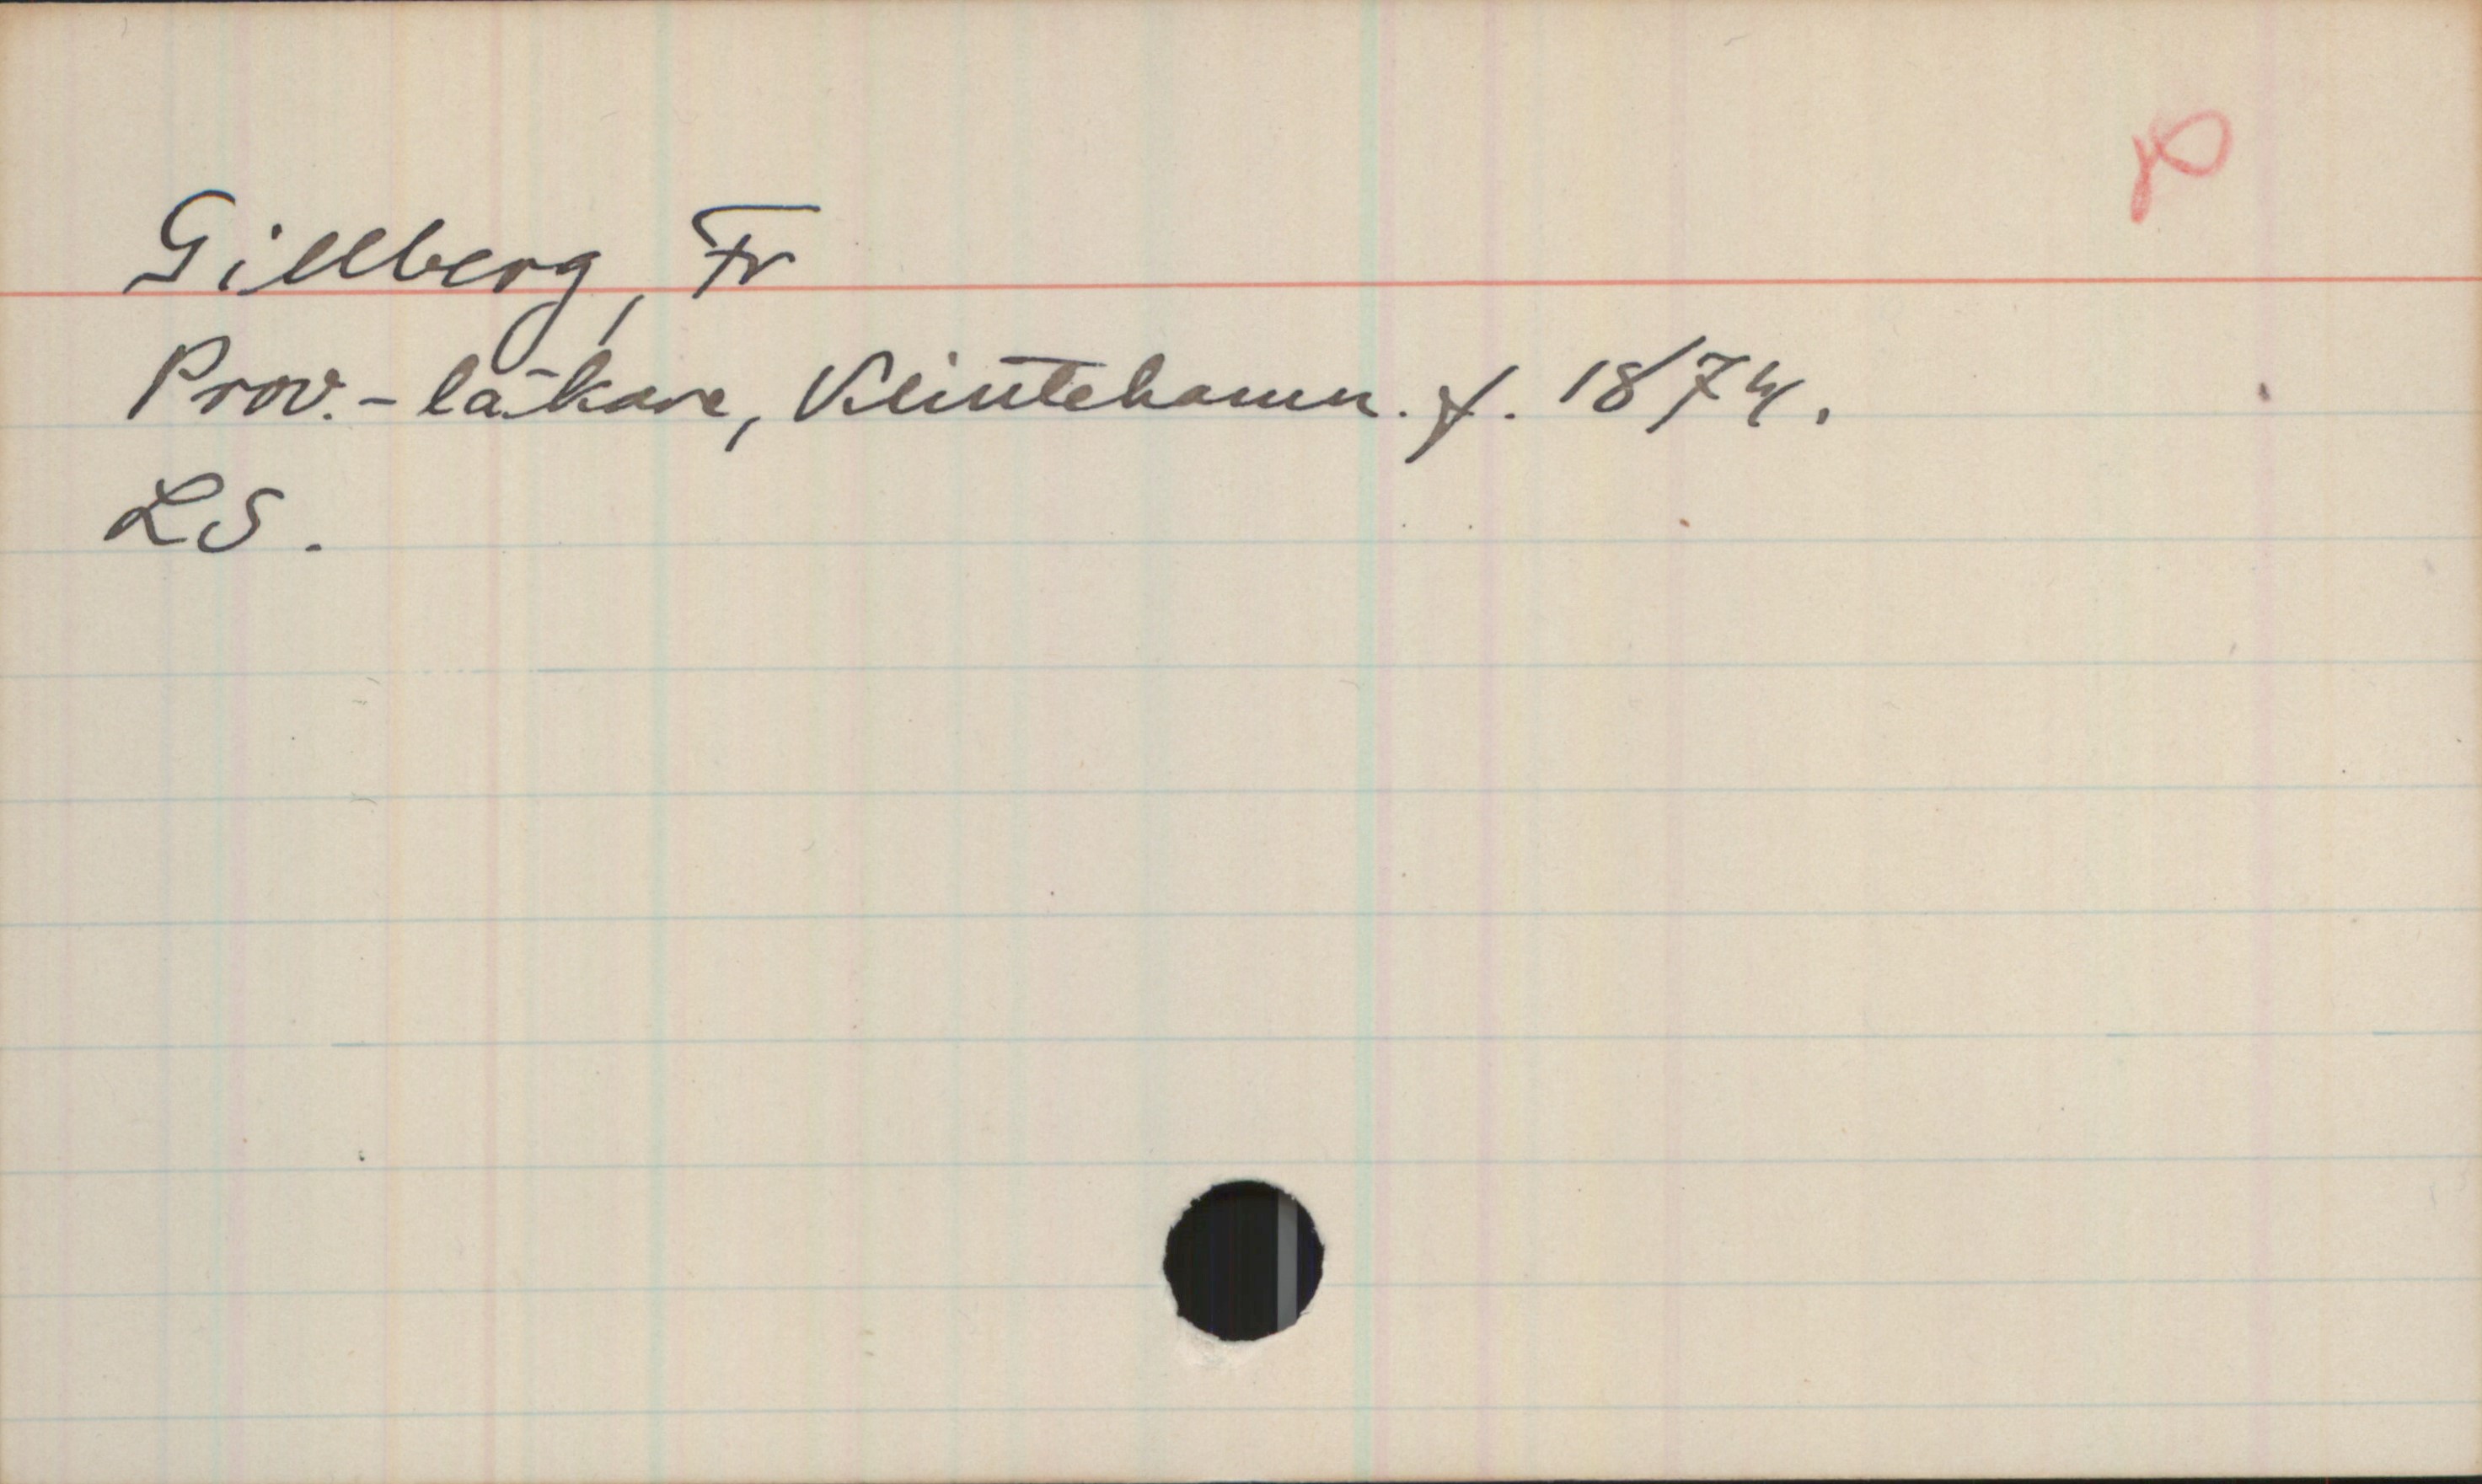 Gillberg, Fr
Prov.-läkare, Klintehamn. f. 1874.
LS.